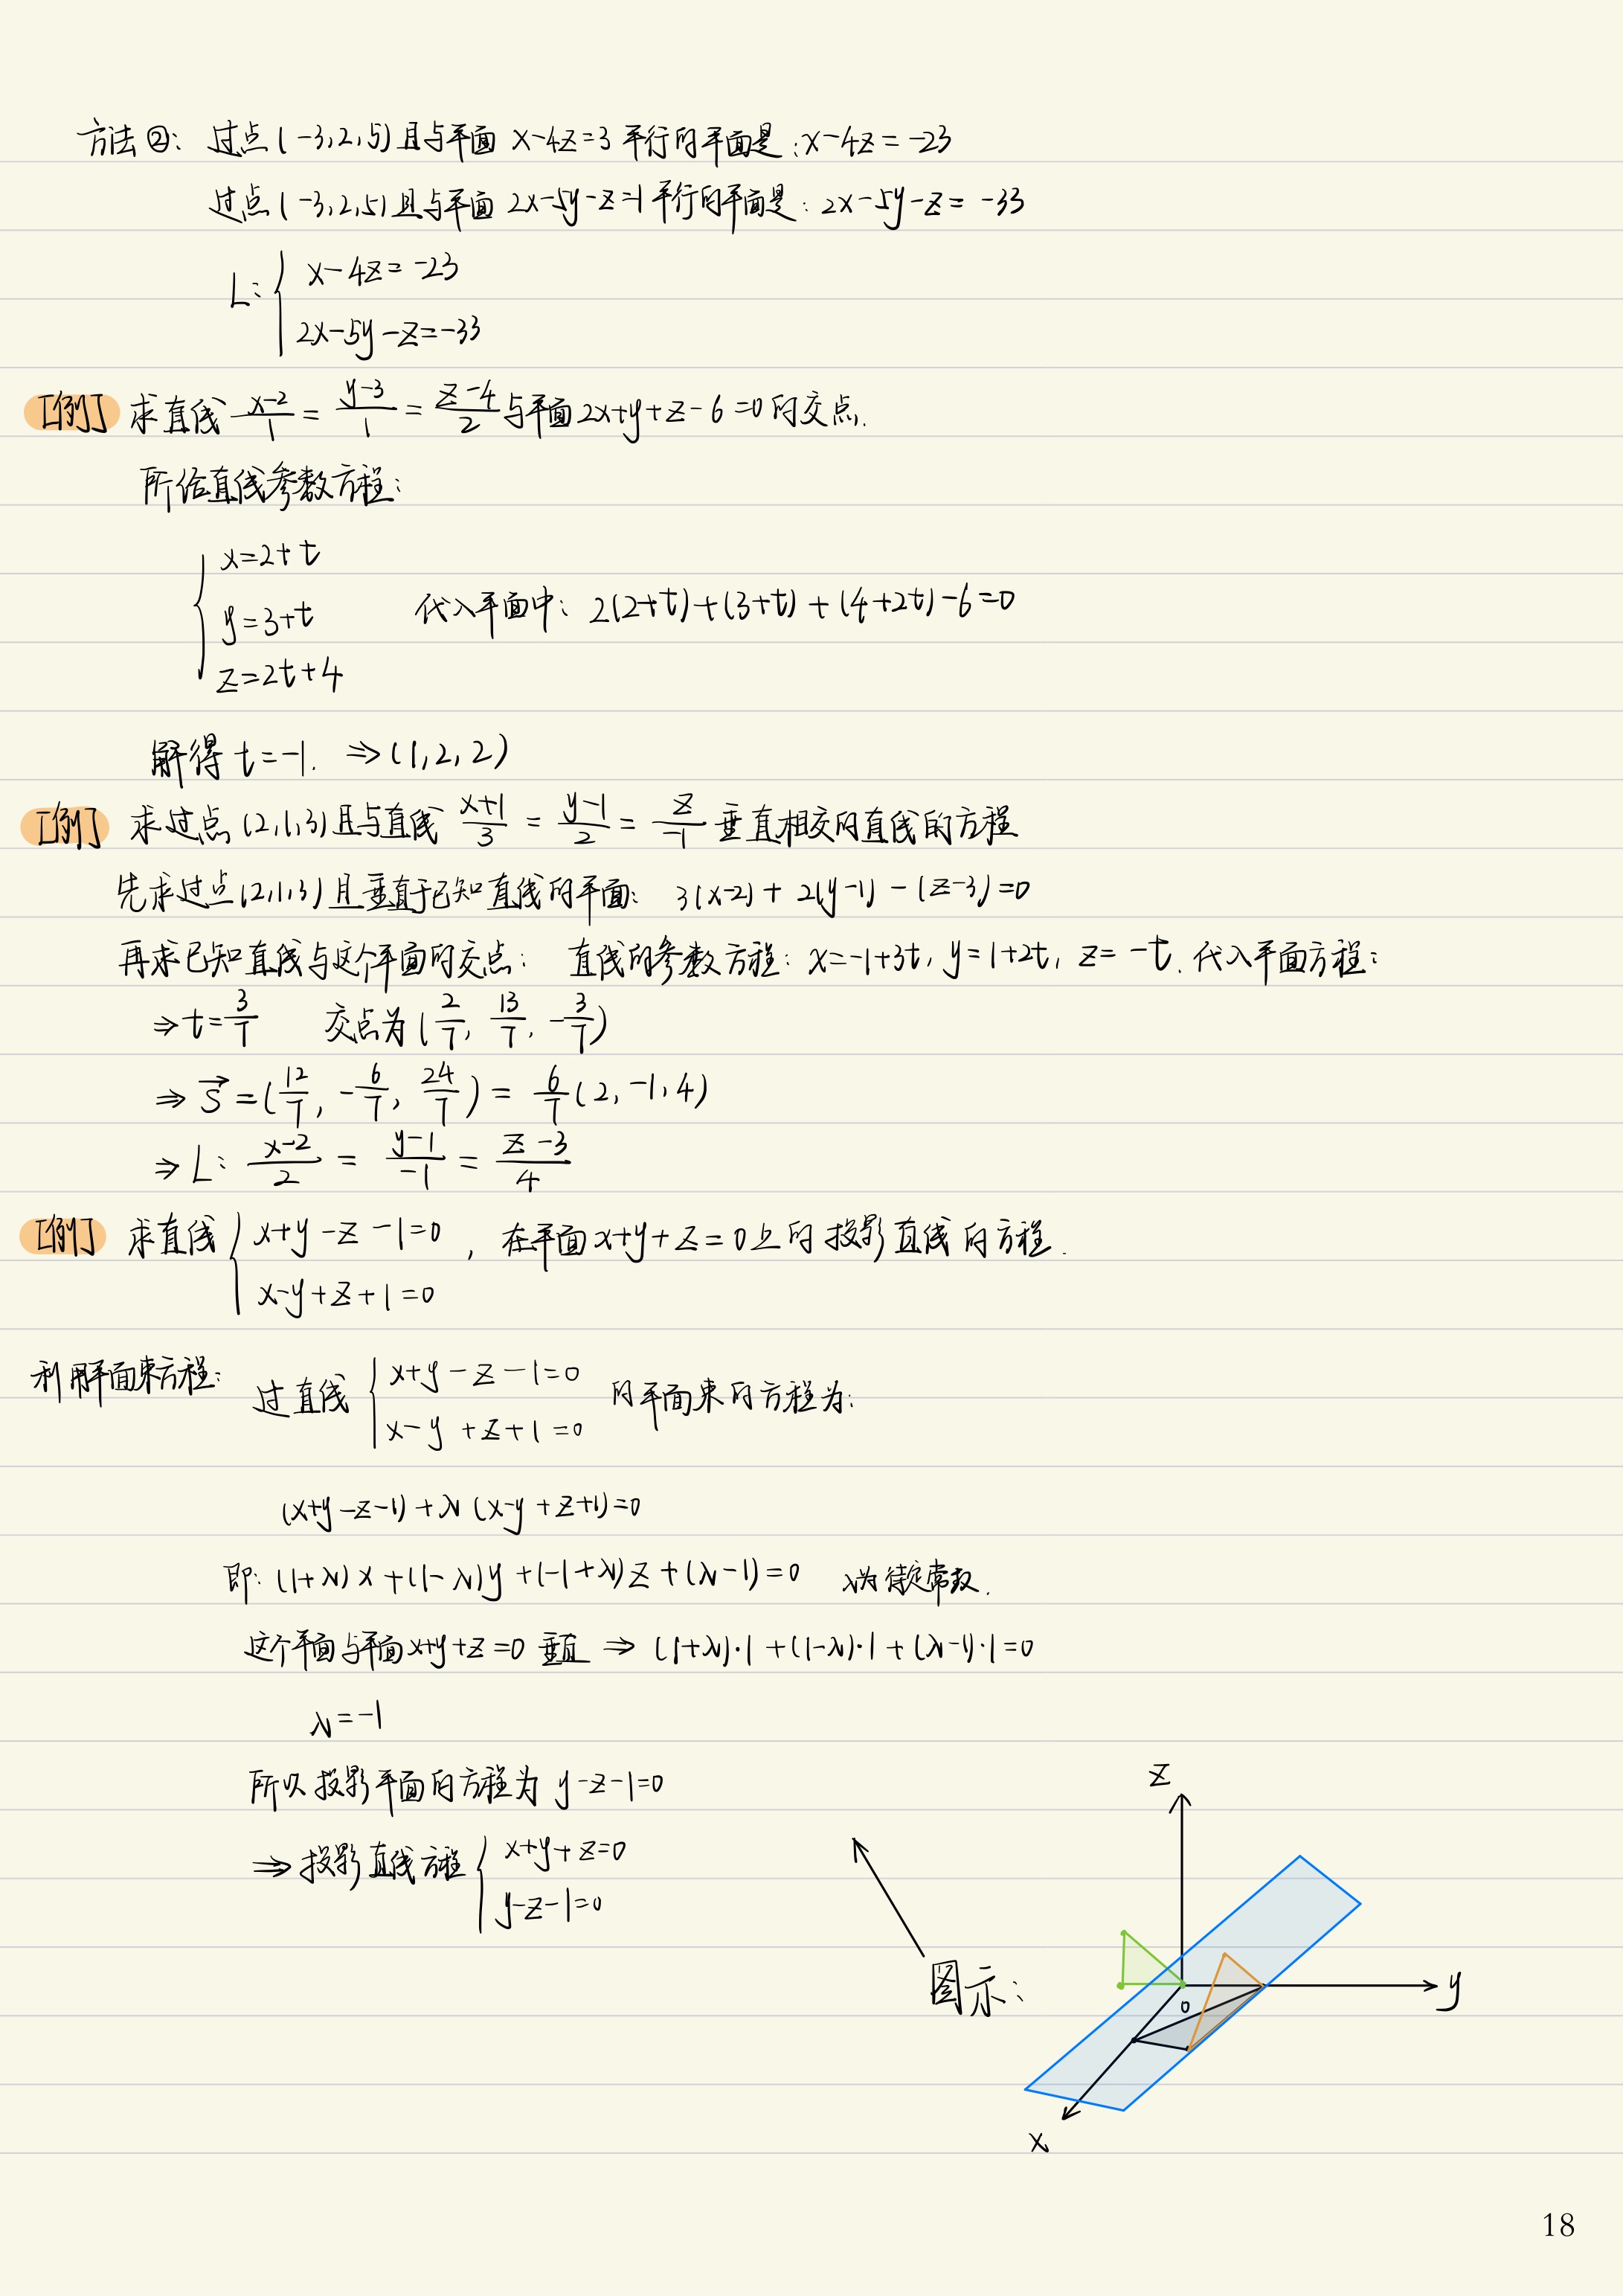 方法②: 过点(-3,2,5)且与平面 x-4z=3 平行的平面是:x-4z=-23
过点(-3,2,5)且与平面 2x-5y-z=1平行的平面是: 2x-5y-z=-33
L: { x-4z=-23
2x-5y-z=-33
[例] 求直线 (x-2)/1 = (y-3)/1 = (z-4)/2 与平面2x+y+z-6=0的交点.
所给直线参数方程:
{ x=2+t
y=3+t 代入平面中: 2(2+t)+(3+t)+(4+2t)-6=0
z=2t+4
解得 t=-1. ⇒(1,2,2)
[例] 求过点(2,1,3)且与直线 (x+1)/3 = (y-1)/2 = z/-1 垂直相交的直线的方程
先求过点(2,1,3)且垂直于已知直线的平面: 3(x-2)+2(y-1)-(z-3)=0
再求已知直线与这个平面的交点: 直线的参数方程: x=-1+3t, y=1+2t, z=-t. 代入平面方程:
⇒t=3/7 交点为(2/7, 13/7, -3/7)
⇒ S⃗=(12/7, -6/7, 24/7) = 6/7(2,-1,4)
⇒ L: (x-2)/2 = (y-1)/-1 = (z-3)/4
[例] 求直线 { x+y-z-1=0 , 在平面x+y+z=0上的投影直线的方程.
x-y+z+1=0
利用平面束方程: 过直线 { x+y-z-1=0 的平面束的方程为:
x-y+z+1=0
(x+y-z-1)+λ(x-y+z+1)=0
即: (1+λ)x+(1-λ)y+(-1+λ)z+(λ-1)=0 λ为待定常数.
这个平面与平面x+y+z=0 垂直 ⇒ (1+λ)·1+(1-λ)·1+(λ-1)·1=0
λ=-1
所以投影平面的方程为 y-z-1=0
⇒投影直线方程 { x+y+z=0
y-z-1=0
图示:
z
y
0
x
18